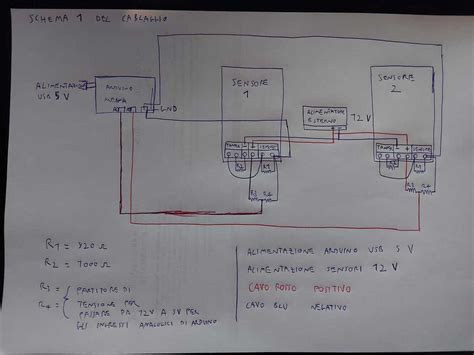 SCHEMA 1 DEL CABLAGGIO
ALIMENTAZ
USB 5 V
ARDUINO
MEGA
GND
SENSORE
1
SENSORE
2
ALIMENTATORE
ESTERNO
12 V
- +
- +
R3 R4
R3 R4
R1 = 820 Ω
R2 = 7000 Ω
R3 = PARTITORE DI
R4 = TENSIONE PER
PASSARE DA 12V A 5V PER
GLI INGRESSI ANALOGICI DI ARDUINO
ALIMENTAZIONE ARDUINO USB 5 V
ALIMENTAZIONE SENSORI 12 V
CAVO ROSSO POSITIVO
CAVO BLU NEGATIVO